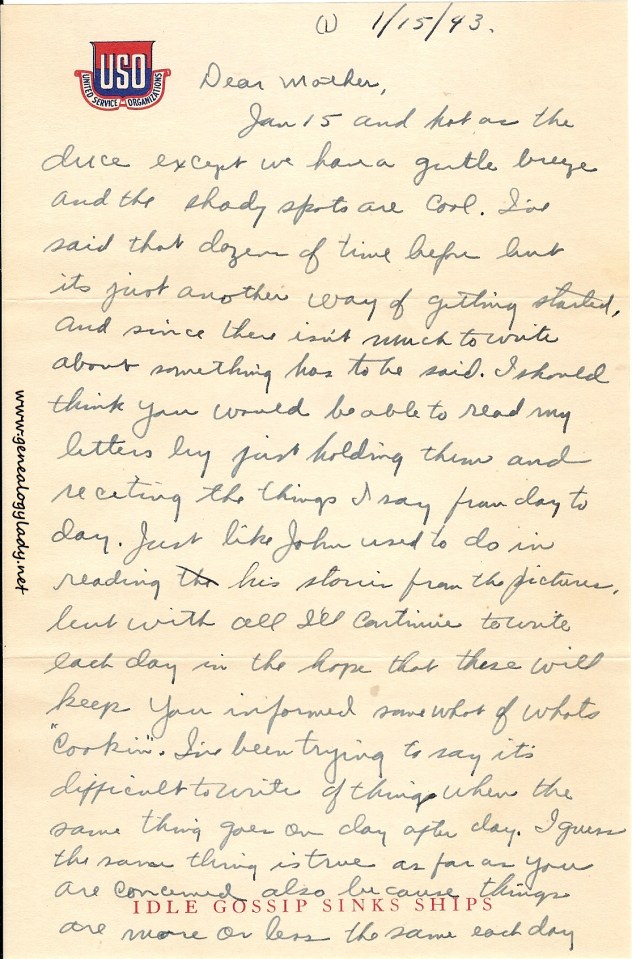 (1) 1/15/43.
USO
UNITED SERVICE ORGANIZATIONS
Dear Mother,
Jan 15 and hot as the
duce except we have a gentle breeze
and the shady spots are cool. I've
said that dozens of time before but
its just another way of getting started,
and since there isn't much to write
about something has to be said. I should
think you would be able to read my
letters by just holding them and
reciting the things I say from day to
day. Just like John used to do in
reading the his stories from the pictures,
but with all I'll continue to write
each day in the hope that these will
keep you informed somewhat of whats
"cookin". I've been trying to say it's
difficult to write of things when the
same thing goes on day after day. I guess
the same thing is true as far as you
are concerned also because things
IDLE GOSSIP SINKS SHIPS
are more or less the same each day
www.genealogylady.net